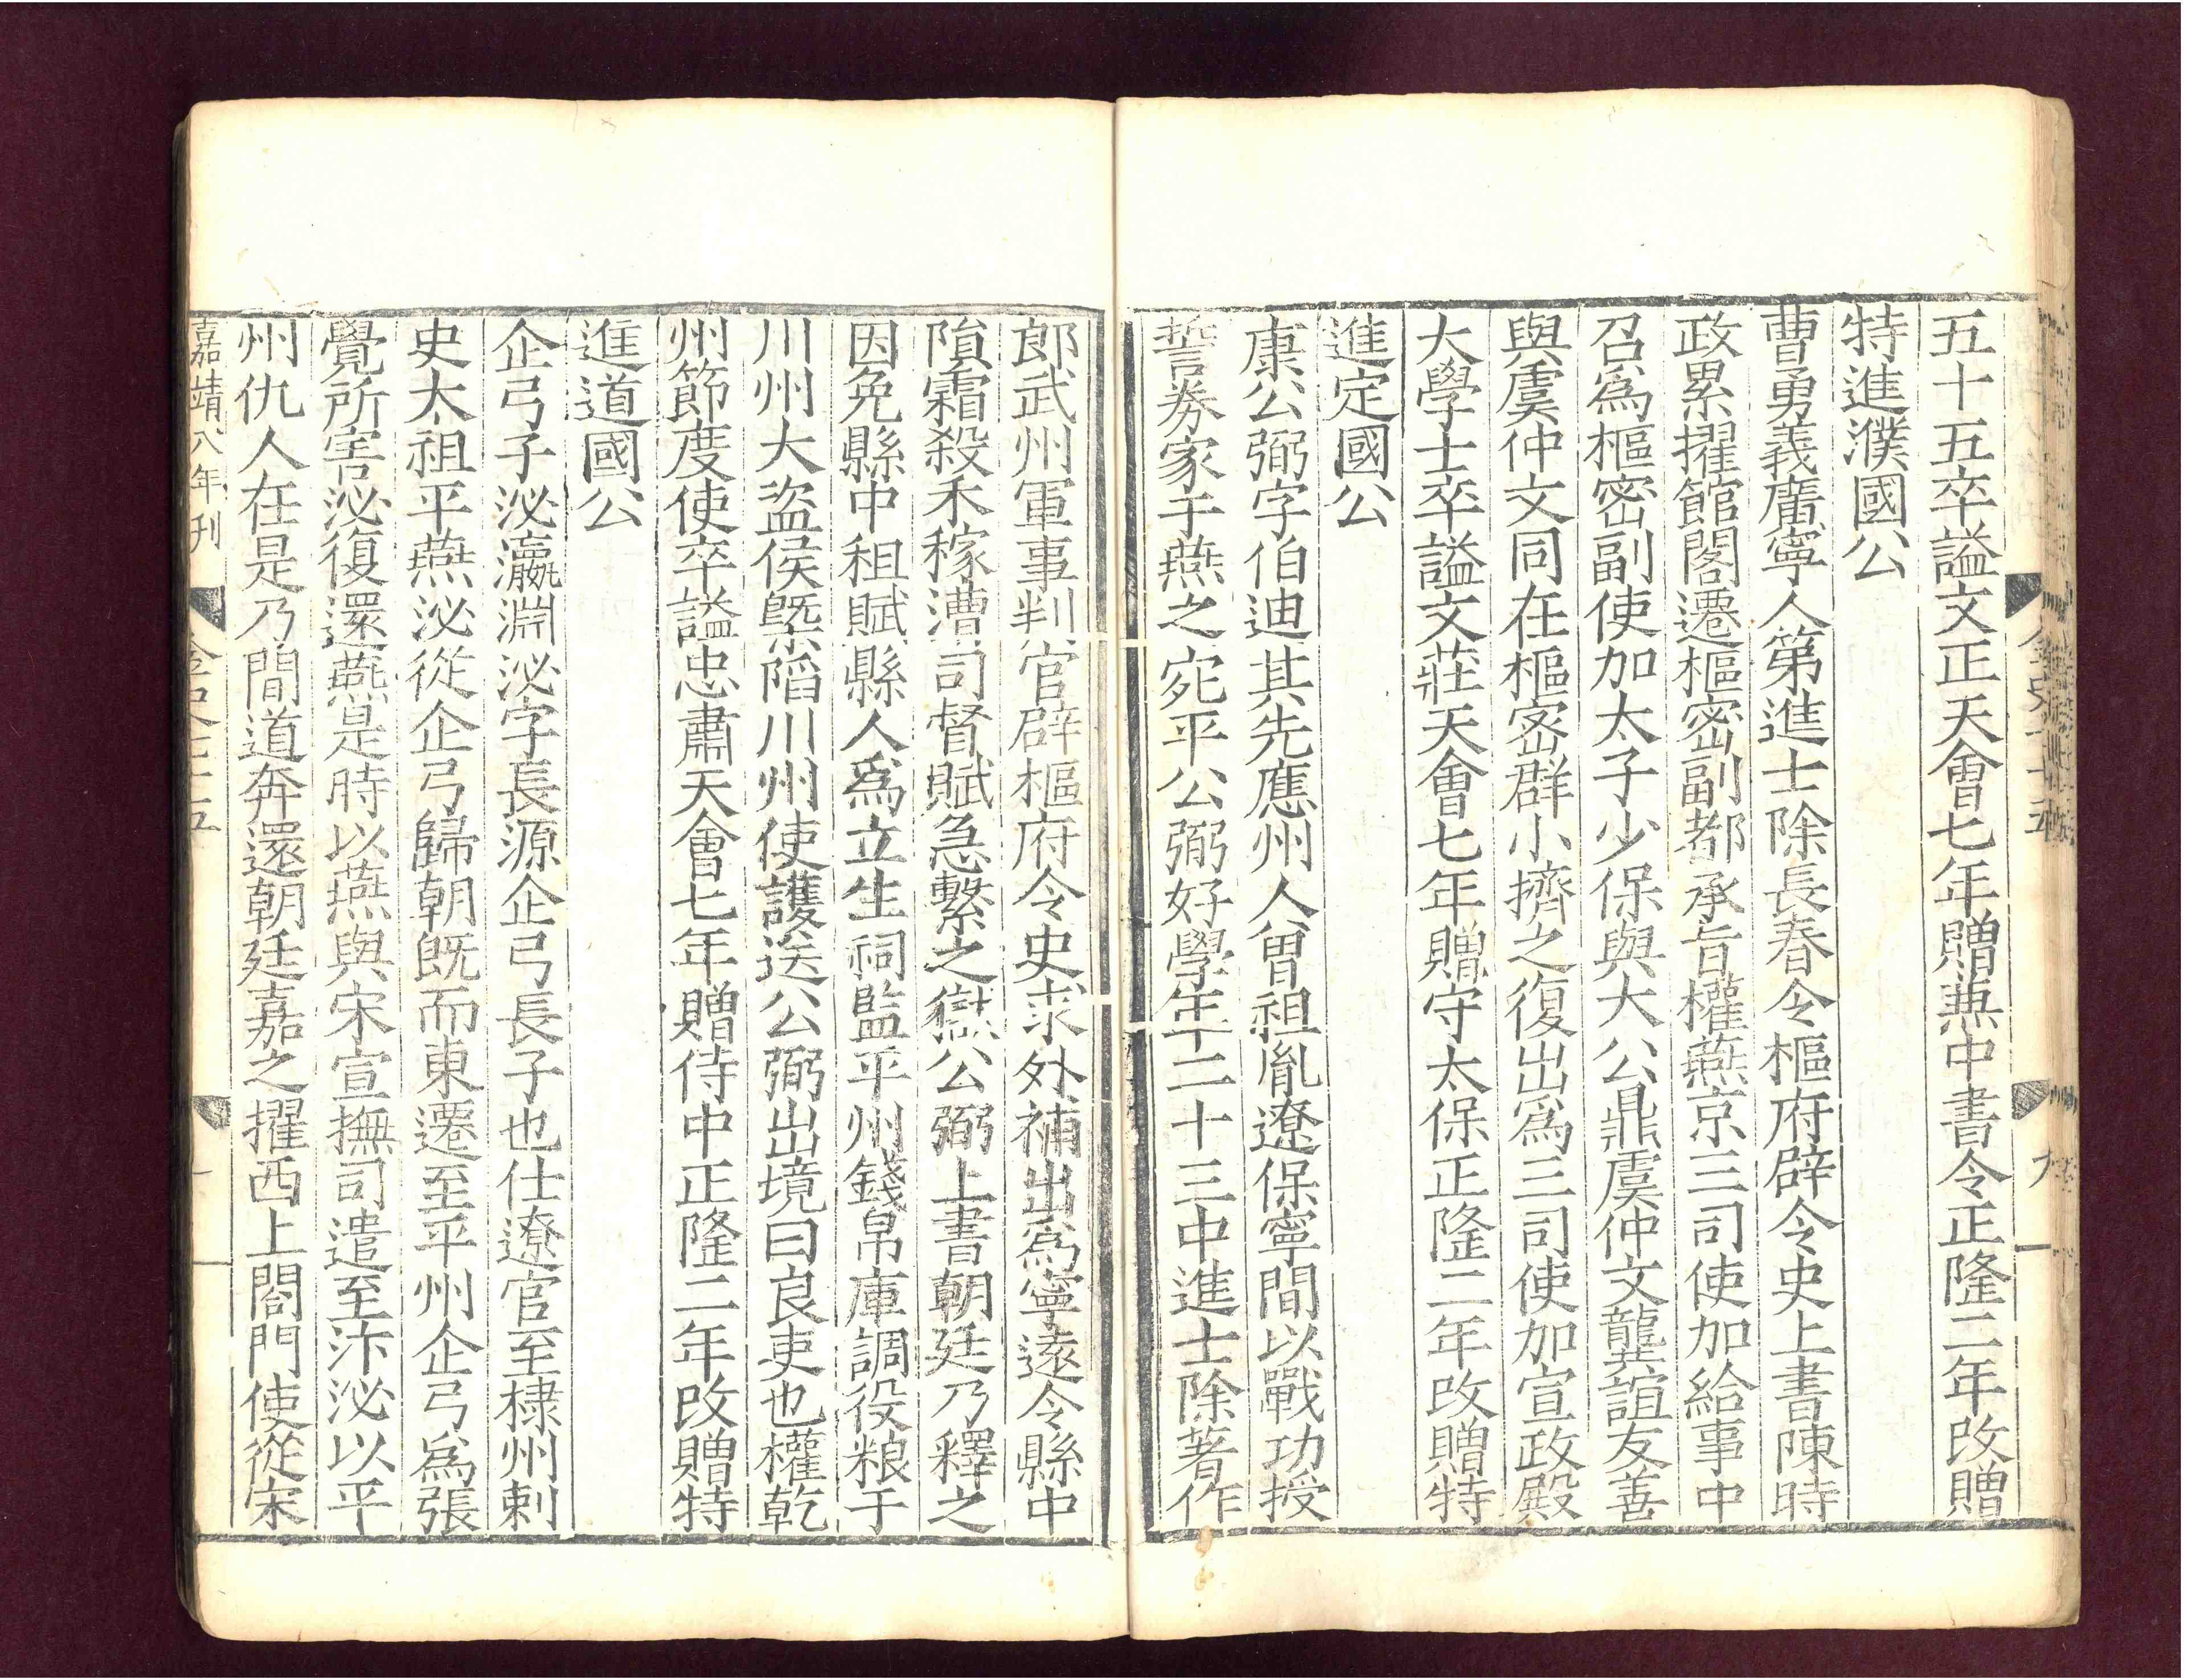 五十五卒謚文正天會七年贈兼中書令正隆二年改贈
特進濮國公
曹勇義廣寧人第進士除長春令樞府辟令史上書陳時
政累擢館閣遷樞密副都承旨權燕京三司使加給事中
召為樞密副使加太子少保與大公鼎虞仲文龔誼友善
與虞仲文同在樞密群小擠之復出為三司使加宣政殿
大學士卒謚文莊天會七年贈守太保正隆二年改贈特
進定國公
康公弼字伯迪其先應州人曾祖胤遼保寧間以戰功授
誓券家于燕之宛平公弼好學年二十三中進士除著作
郎武州軍事判官辟樞府令史求外補出為寧遠令縣中
隕霜殺禾稼漕司督賦急繫之獄公弼上書朝廷乃釋之
因免縣中租賦縣人為立生祠監平州錢帛庫調役粮于
川州大盜侯槩陷川州使護送公弼出境曰良吏也權乾
州節度使卒謚忠肅天會七年贈侍中正隆二年改贈特
進道國公
企弓子泌瀛淵泌字長源企弓長子也仕遼官至棣州刺
史太祖平燕泌從企弓歸朝既而東遷至平州企弓為張
覺所害泌復還燕是時以燕與宋宣撫司遣至汴泌以平
州仇人在是乃間道奔還朝廷嘉之擢西上閤門使從宋
嘉靖八年刊
金史七十五